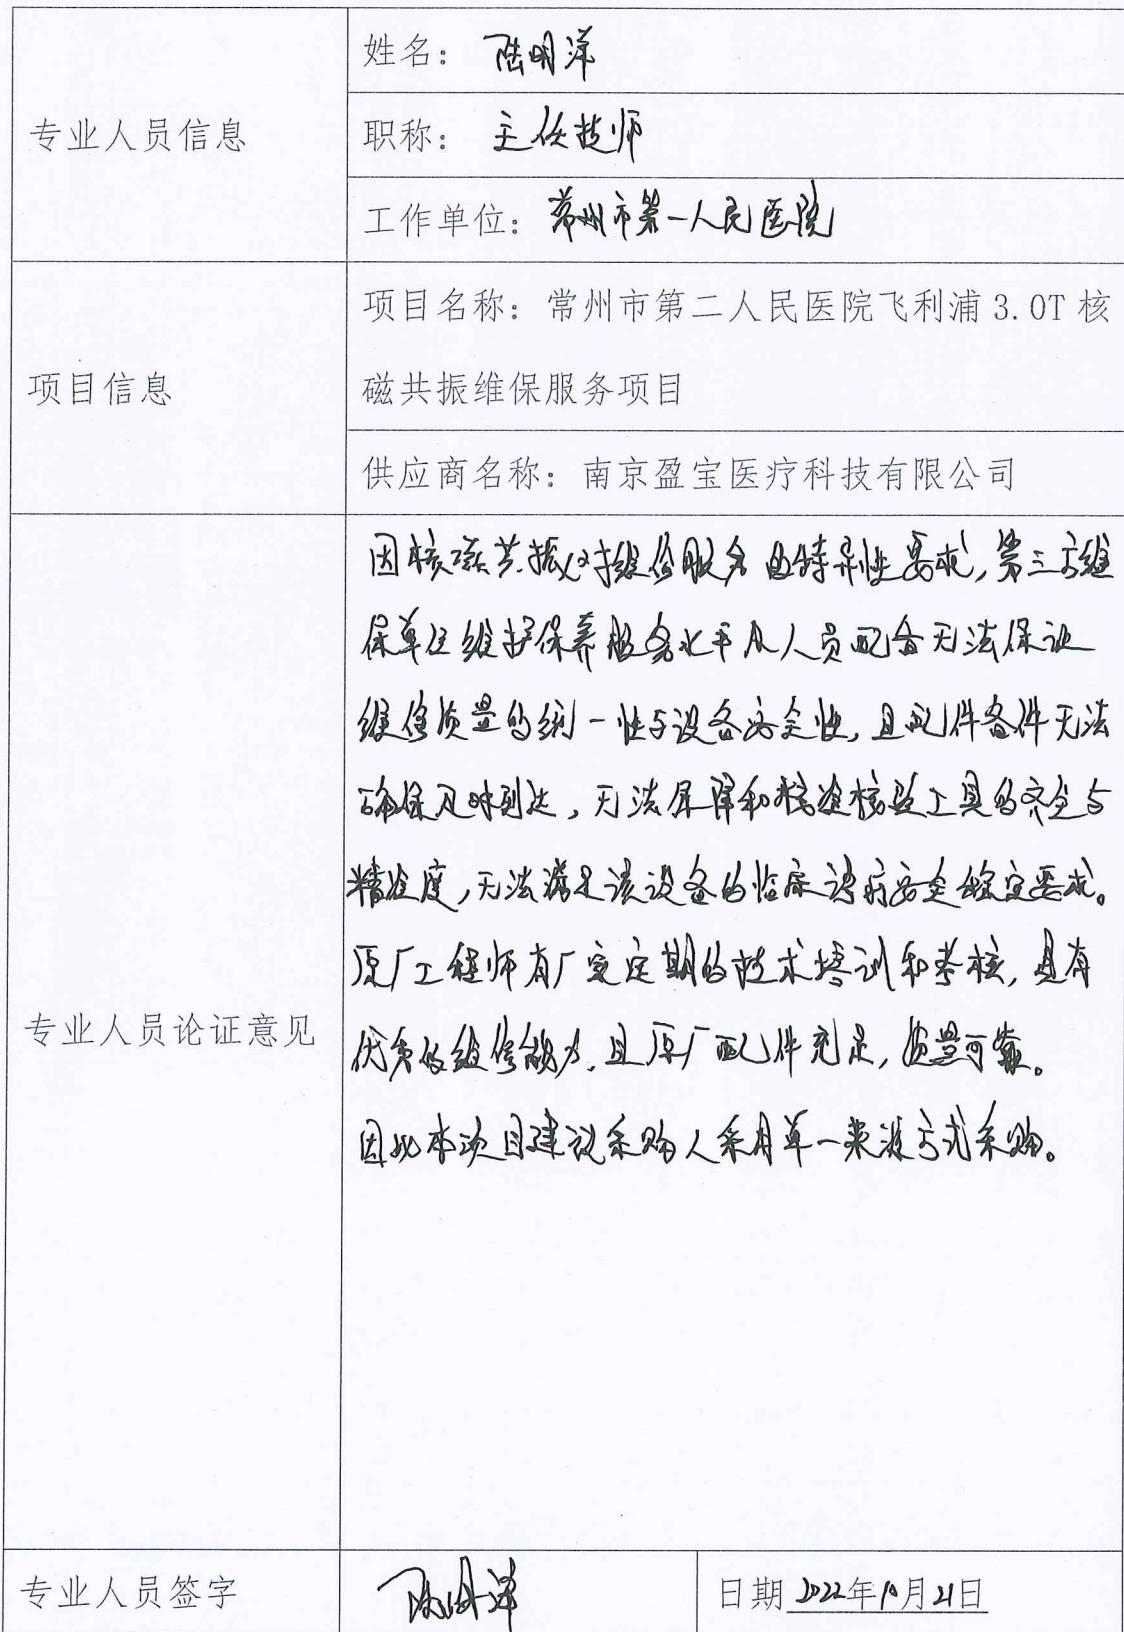 专业人员信息
姓名：陆明洋
职称：主任技师
工作单位：常州市第一人民医院
项目信息
项目名称：常州市第二人民医院飞利浦3.0T核
磁共振维保服务项目
供应商名称：南京盈宝医疗科技有限公司
专业人员论证意见
因核磁共振仪对维修服务的特异性要求，第三方维
保单位维护保养服务水平及人员配备无法保证
维修质量的统一性与设备安全性，且配件备件无法
确保及时到达，无法保障和校准核验工具的齐全与
精准度，无法满足该设备的临床诊疗安全稳定要求。
原厂工程师有厂家定期的技术培训和考核，具有
优秀的维修能力，且原厂配件充足，质量可靠。
因此本项目建议采购人采用单一来源方式采购。
专业人员签字
陆明洋
日期2022年10月21日